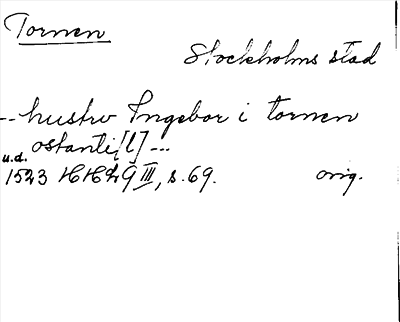 Tornen
Stockholms stad
-- hustrv Ingebor i tornen
ostanti[l] ---
u.d.
1523 HH III, s. 69. orig.